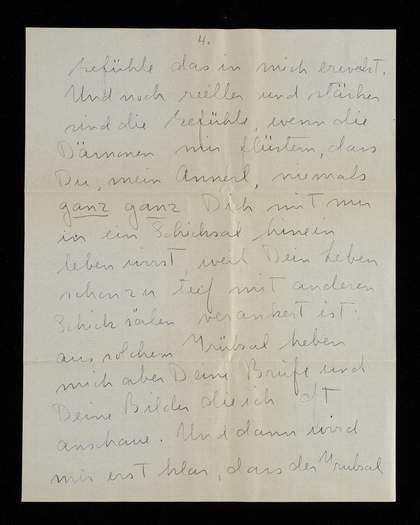 4.
Gefühle das in mich erweckt.
Und noch reeller und stärker
sind die Gefühle, wenn die
Dämonen mir flüstern, dass
Du, mein Annerl, niemals
ganz ganz Dich mit mir
in ein Schicksal hinein
leben wirst, weil Dein Leben
schon zu tief mit anderen
Schicksalen verankert ist.
aus solchem Trübsal heben
mich aber Deine Briefe und
Deine Bilder die ich oft
anschaue. Und dann wird
mir erst klar, dass der Trübsal